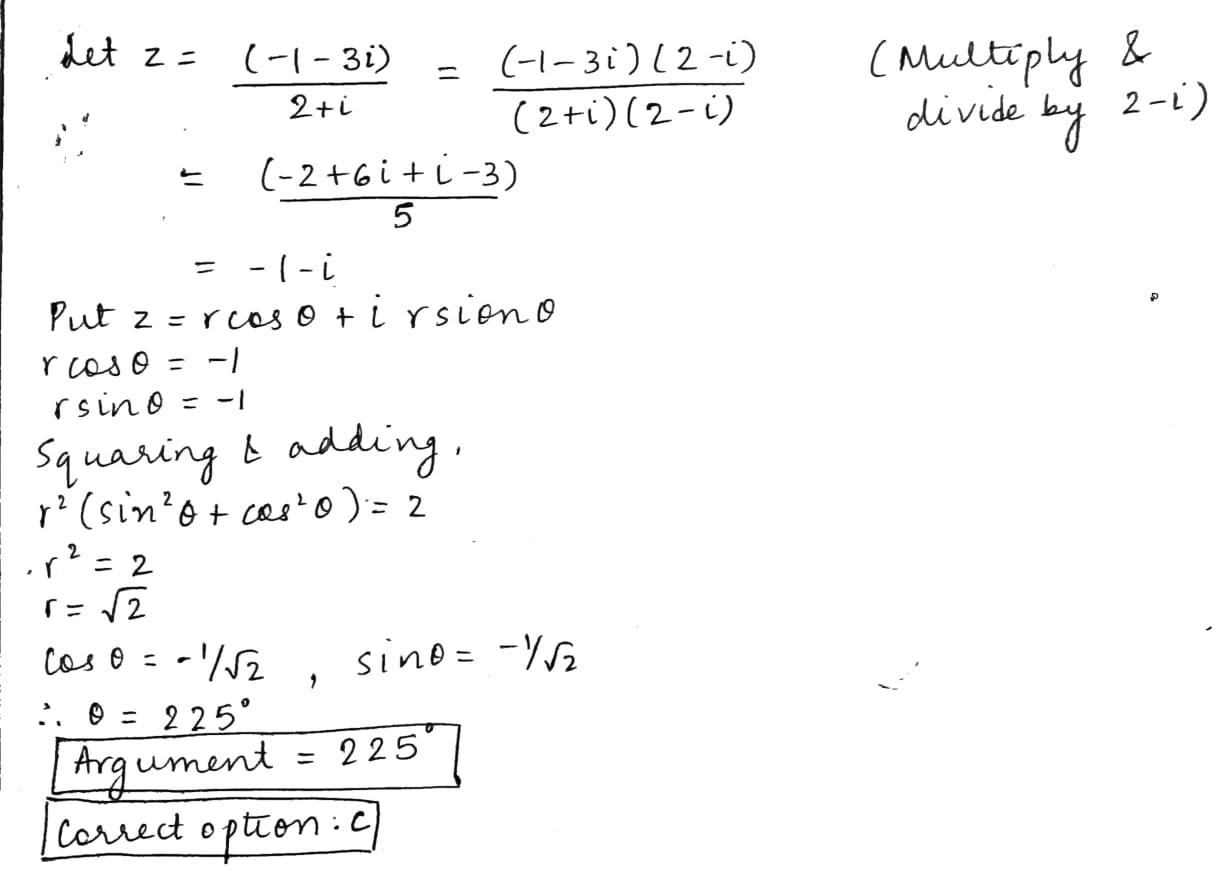 Let z = (-1-3i)/2+i = (-1-3i)(2-i)/(2+i)(2-i) (Multiply & divide by 2-i)
= (-2+6i+i-3)/5
= -1-i
Put z = rcosθ + i rsionθ
rcosθ = -1
rsinθ = -1
Squaring & adding,
r²(sin²θ + cos²θ) = 2
r² = 2
r = √2
Cosθ = -1/√2 , sinθ = -1/√2
∴ θ = 225°
Argument = 225°
Correct option : C